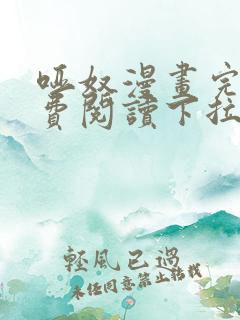 哑奴漫畫完
費閱讀下拉
輕風已過
未任同意禁止轉載